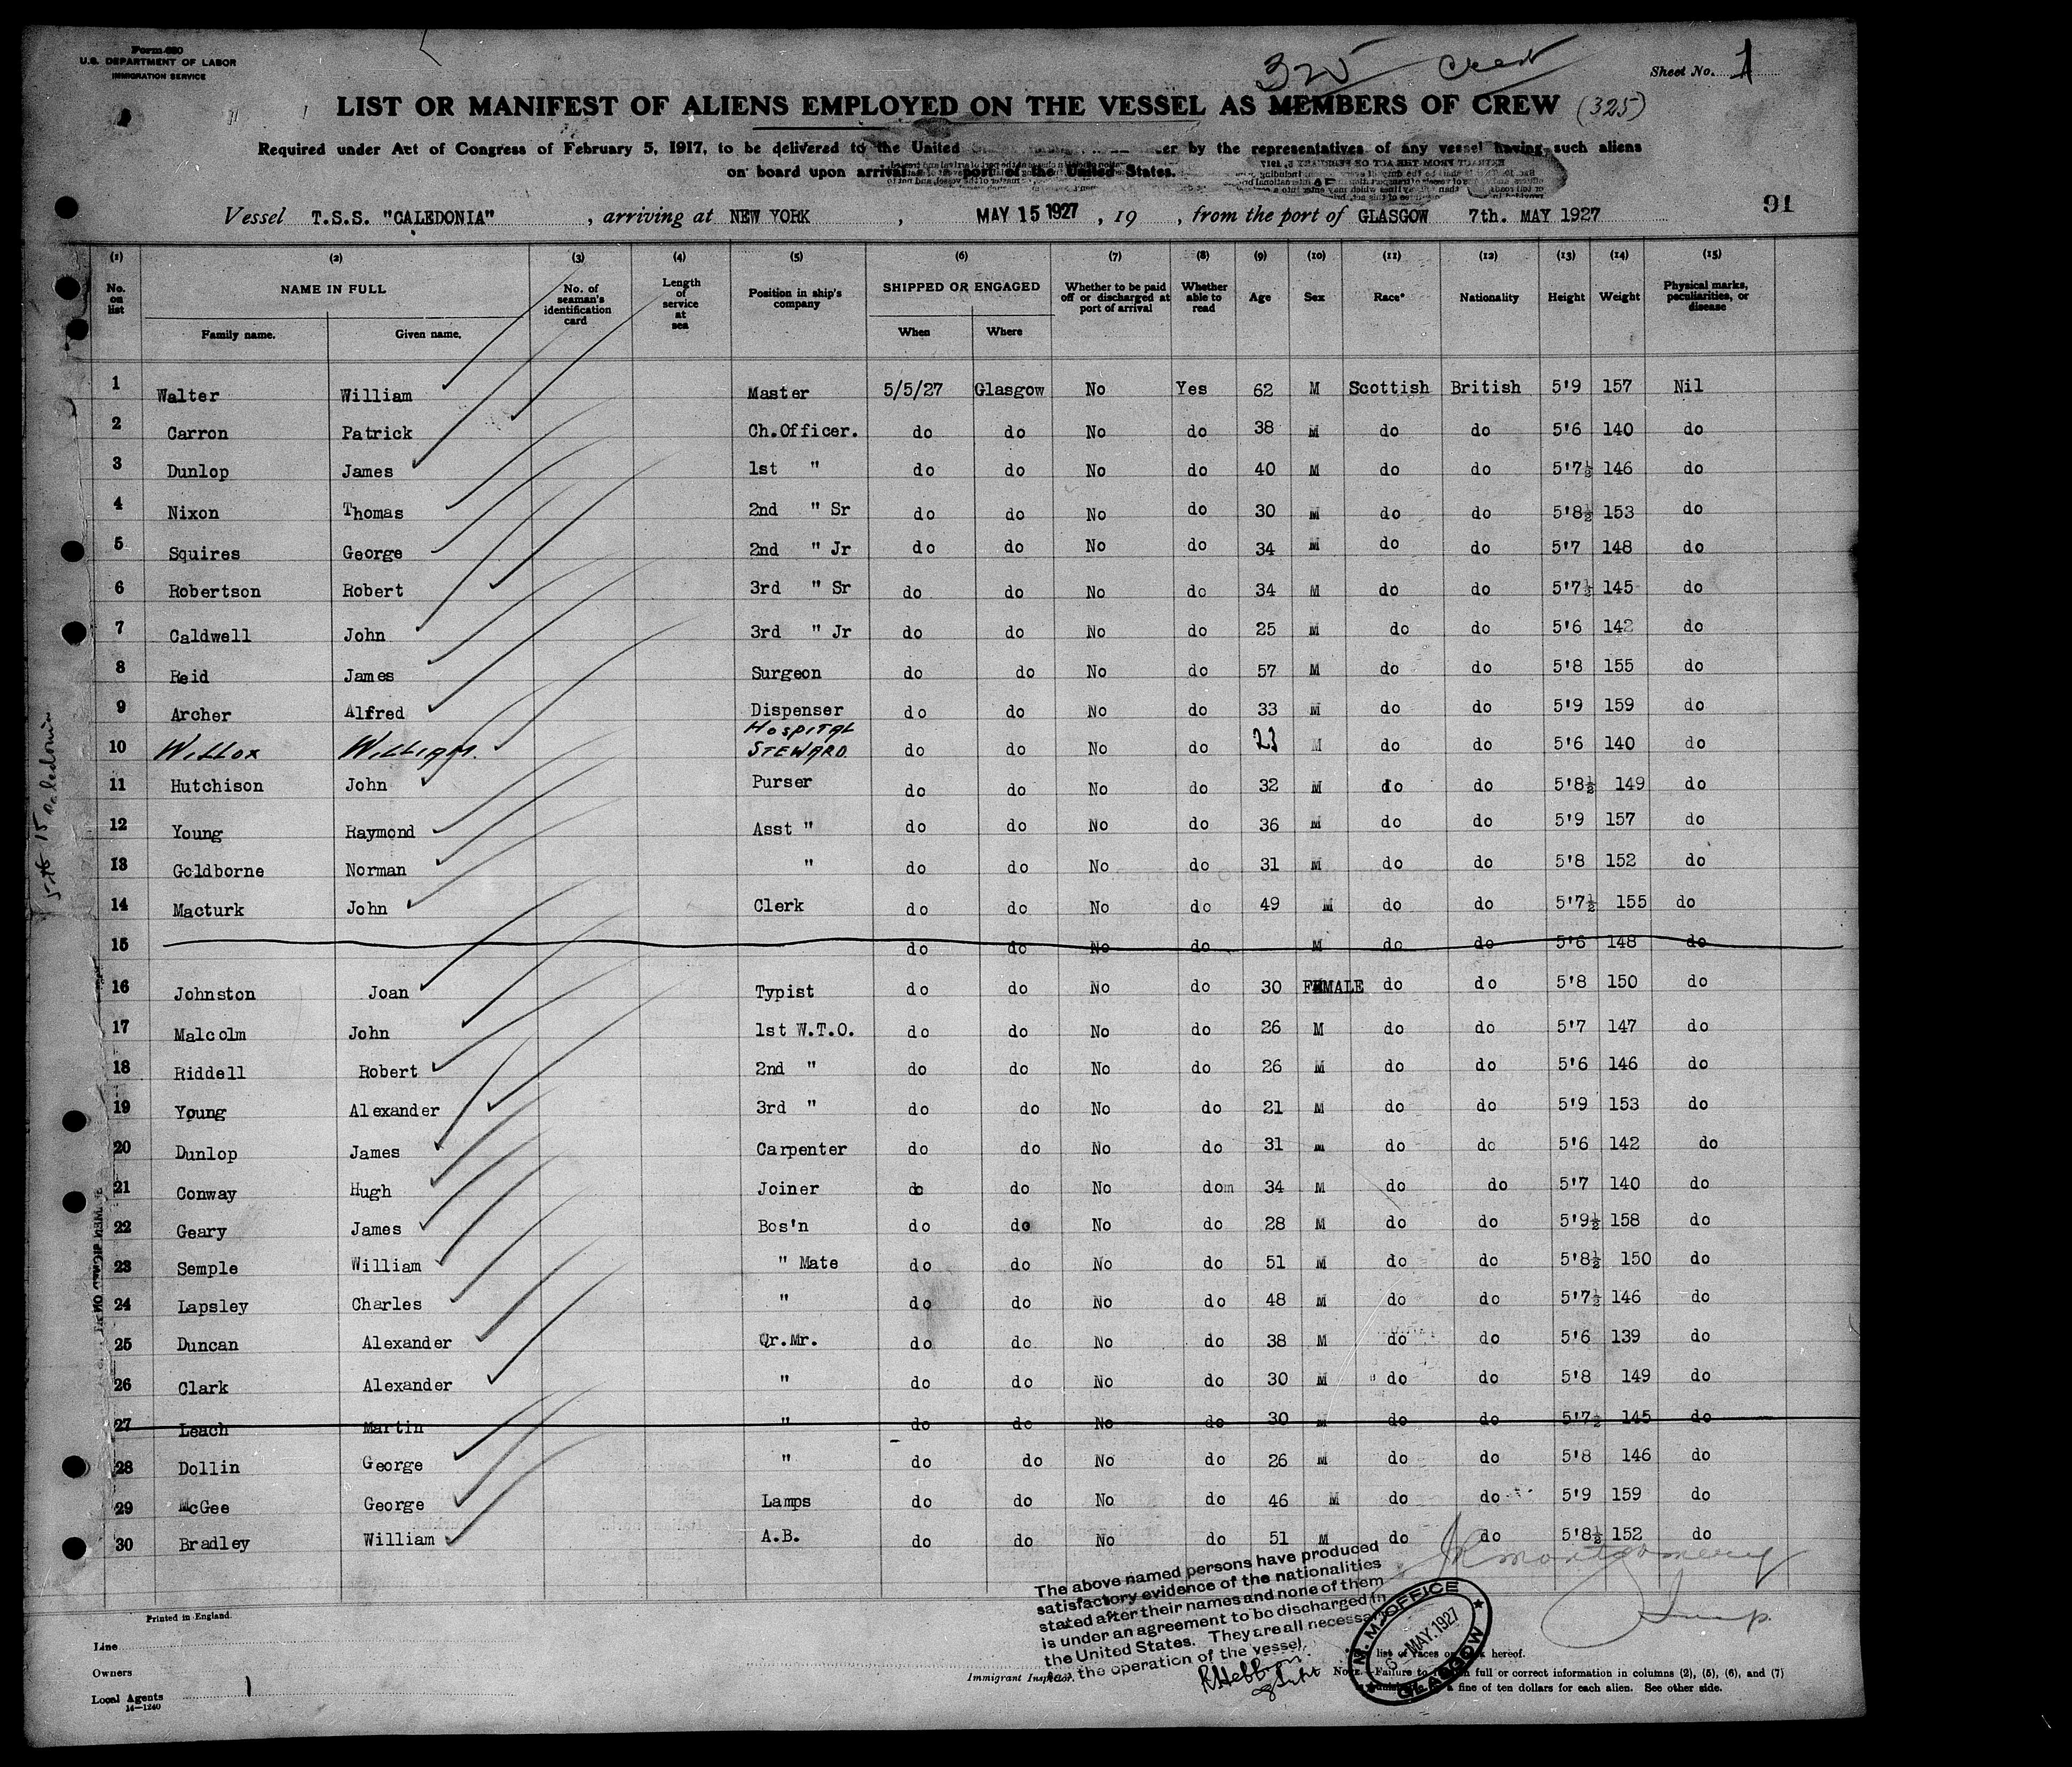 Form 680
U.S. DEPARTMENT OF LABOR
IMMIGRATION SERVICE
325 Crew
Sheet No. 1
LIST OR MANIFEST OF ALIENS EMPLOYED ON THE VESSEL AS MEMBERS OF CREW (325)
Required under Act of Congress of February 5, 1917, to be delivered to the United er by the representatives of any vessel having such aliens
on board upon arrival port of the United States.
91
Vessel T.S.S. "CALEDONIA" , arriving at NEW YORK , MAY 15 1927 , 19 , from the port of GLASGOW 7th. MAY 1927
(1) (2) (3) (4) (5) (6) (7) (8) (9) (10) (11) (12) (13) (14) (15)
No. on list NAME IN FULL Family name. Given name. No. of seaman's identification card Length of service at sea Position in ship's company SHIPPED OR ENGAGED When Where Whether to be paid off or discharged at port of arrival Whether able to read Age Sex Race* Nationality Height Weight Physical marks, peculiarities, or disease
1 Walter William Master 5/5/27 Glasgow No Yes 62 M Scottish British 5'9 157 Nil
2 Carron Patrick Ch.Officer. do do No do 38 M do do 5'6 140 do
3 Dunlop James 1st " do do No do 40 M do do 5'7½ 146 do
4 Nixon Thomas 2nd " Sr do do No do 30 M do do 5'8½ 153 do
5 Squires George 2nd " Jr do do No do 34 M do do 5'7 148 do
6 Robertson Robert 3rd " Sr do do No do 34 M do do 5'7½ 145 do
7 Caldwell John 3rd " Jr do do No do 25 M do do 5'6 142 do
8 Reid James Surgeon do do No do 57 M do do 5'8 155 do
9 Archer Alfred Dispenser do do No do 33 M do do 5'9 159 do
10 Willox William. Hospital Steward. do do No do 23 M do do 5'6 140 do
11 Hutchison John Purser do do No do 32 M do do 5'8½ 149 do
12 Young Raymond Asst " do do No do 36 M do do 5'9 157 do
13 Goldborne Norman " do do No do 31 M do do 5'8 152 do
14 Macturk John Clerk do do No do 49 M do do 5'7½ 155 do
15 do do No do M do do 5'6 148 do
16 Johnston Joan Typist do do No do 30 FEMALE do do 5'8 150 do
17 Malcolm John 1st W.T.O. do do No do 26 M do do 5'7 147 do
18 Riddell Robert 2nd " do do No do 26 M do do 5'6 146 do
19 Young Alexander 3rd " do do No do 21 M do do 5'9 153 do
20 Dunlop James Carpenter do do No do 31 M do do 5'6 142 do
21 Conway Hugh Joiner do do No dom 34 M do do 5'7 140 do
22 Geary James Bos'n do do No do 28 M do do 5'9½ 158 do
23 Semple William " Mate do do No do 51 M do do 5'8½ 150 do
24 Lapsley Charles " do do No do 48 M do do 5'7½ 146 do
25 Duncan Alexander Qr.Mr. do do No do 38 M do do 5'6 139 do
26 Clark Alexander " do do No do 30 M do do 5'8 149 do
27 Leach Martin " do do No do 30 M do do 5'7½ 145 do
28 Dollin George " do do No do 26 M do do 5'8 146 do
29 McGee George Lamps do do No do 46 M do do 5'9 159 do
30 Bradley William A.B. do do No do 51 M do do 5'8½ 152 do
Montgomery
The above named persons have produced
satisfactory evidence of the nationalities
stated after their names and none of them
is under an agreement to be discharged in
the United States. They are all necessary
the operation of the vessel.
M. M. OFFICE
6 - MAY. 1927
GLASGOW
Printed in England.
Line
Owners
Local Agents 1
14—1240
Immigrant Inspector.
list of races on back hereof.
NOTE.—Failure to full or correct information in columns (2), (5), (6), and (7)
a fine of ten dollars for each alien. See other side.